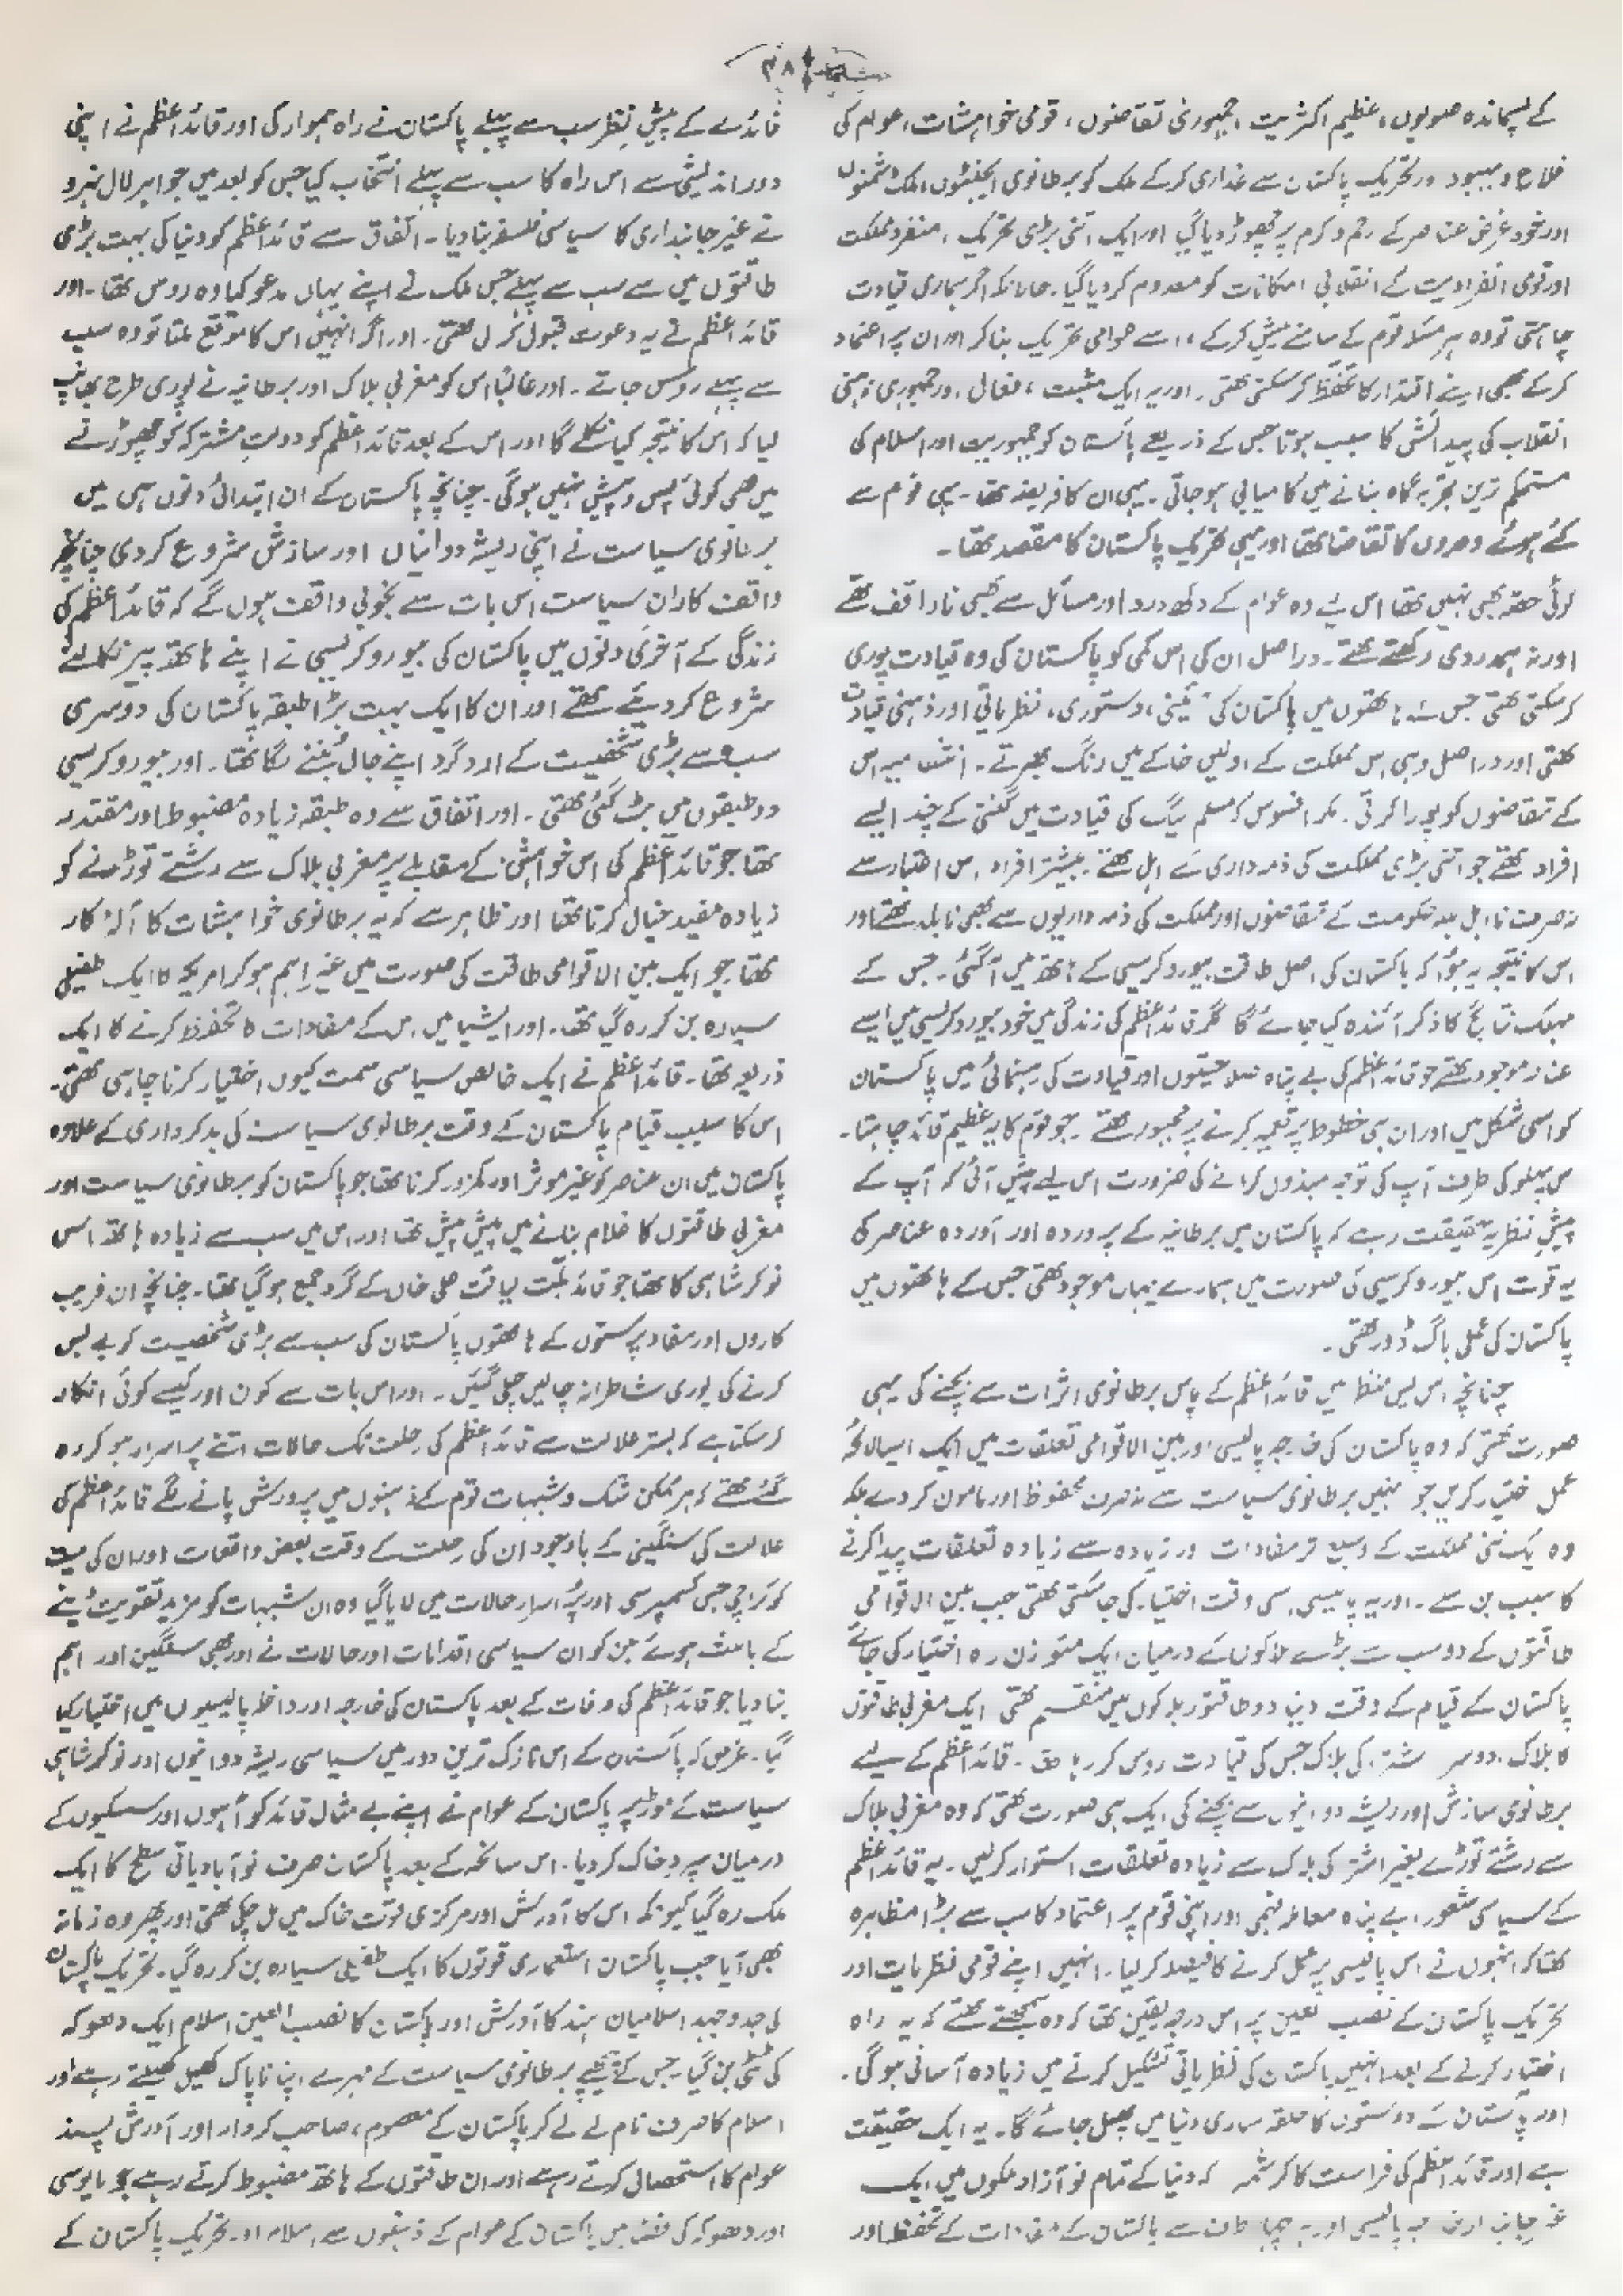 ۳۸
کے پسماندہ صوبوں، عظیم اکثریت، جمہوری تقاضوں، قومی خواہشات، عوام کی
فلاح و بہبود اور تحریک پاکستان سے غداری کر کے ملک کو برطانوی ایجنٹوں، ملک دشمنوں
اور خود غرض عناصر کے رحم و کرم پر چھوڑ دیا گیا اور ایک اتنی بڑی تحریک، منفرد مملکت
اور قومی انفرادیت کے انقلابی امکانات کو معدوم کر دیا گیا۔ حالانکہ اگر ہماری قیادت
چاہتی تو وہ ہر مسئلہ قوم کے سامنے پیش کر کے، اسے عوامی تحریک بنا کر اور ان پر اعتماد
کر کے بھی اپنے اقتدار کا تحفظ کر سکتی تھی۔ اور یہ ایک مثبت، فعال اور جمہوری ذہنی
انقلاب کی پیدائش کا سبب ہوتا جس کے ذریعے پاکستان کو جمہوریت اور اسلام کی
مستحکم ترین تجربہ گاہ بنانے میں کامیابی ہو جاتی۔ یہی ان کا فریضہ تھا۔ یہی قوم سے
کئے ہوئے وعدوں کا تقاضا تھا اور یہی تحریک پاکستان کا مقصد تھا۔
کوئی حصہ بھی نہیں تھا اس لئے وہ عوام کے دکھ درد اور مسائل سے بھی ناواقف تھے
اور نہ ہمدردی رکھتے تھے۔ دراصل ان کی اس کمی کو پاکستان کی وہ قیادت پوری
کر سکتی تھی جس کے ہاتھوں میں پاکستان کی آئینی، دستوری، نظریاتی اور ذہنی قیادت
تھی اور دراصل وہی اس مملکت کے اولیں خاکے میں رنگ بھرتے۔
کے تقاضوں کو پورا کرتی۔ مگر افسوس کہ مسلم لیگ کی قیادت میں گنتی کے چند ایسے
افراد تھے جو اتنی بڑی مملکت کی ذمہ داری کے اہل تھے۔ بیشتر افراد اس اعتبار سے
نہ صرف نا اہل بلکہ حکومت کے تقاضوں اور مملکت کی ذمہ داریوں سے بھی نابلد تھے اور
اس کا نتیجہ یہ ہوا کہ پاکستان کی اصل طاقت بیوروکریسی کے ہاتھ میں آ گئی۔ جس کے
مہلک نتائج کا ذکر آئندہ کیا جائے گا مگر قائد اعظم کی زندگی میں خود بیوروکریسی میں ایسے
عناصر موجود تھے جو قائد اعظم کی بے پناہ صلاحیتوں اور قیادت کی رہنمائی میں پاکستان
کو اسی شکل میں اور ان ہی خطوط پر تعمیر کرنے پر مجبور تھے۔ جو قوم کا یہ عظیم قائد چاہتا۔
اس پہلو کی طرف آپ کی توجہ مبذول کرانے کی ضرورت اس لیے پیش آئی کہ آپ کے
پیش نظر یہ حقیقت رہے کہ پاکستان میں برطانیہ کے پروردہ اور آوردہ عناصر کی
یہ قوت اس بیوروکریسی کی صورت میں ہمارے یہاں موجود تھی جس کے ہاتھوں میں
پاکستان کی عملی باگ ڈور تھی۔
چنانچہ اس پس منظر میں قائد اعظم کے پاس برطانوی اثرات سے بچنے کی یہی
صورت تھی کہ وہ پاکستان کی خارجہ پالیسی اور بین الاقوامی تعلقات میں ایک ایسا لائحہ
عمل اختیار کریں جو انہیں برطانوی سیاست سے نہ صرف محفوظ اور مامون کر دے بلکہ
وہ ایک نئی مملکت کے وسیع تر مفادات اور زیادہ سے زیادہ تعلقات پیدا کرنے
کا سبب بن سکے۔ اور یہ پالیسی اسی وقت اختیار کی جا سکتی تھی جب بین الاقوامی
طاقتوں کے دو سب سے بڑے بلاکوں کے درمیان ایک متوازن راہ اختیار کی جائے
پاکستان کے قیام کے وقت دنیا دو طاقتور بلاکوں میں منقسم تھی ایک مغربی طاقتوں
کا بلاک، دوسرا اشتراکی بلاک جس کی قیادت روس کر رہا تھا۔ قائد اعظم کے لیے
برطانوی سازش اور ریشہ دوانیوں سے بچنے کی ایک ہی صورت تھی کہ وہ مغربی بلاک
سے رشتے توڑے بغیر اشتراکی بلاک سے زیادہ تعلقات استوار کر لیں۔ یہ قائد اعظم
کے سیاسی شعور، بے پناہ معاملہ فہمی اور اپنی قوم پر اعتماد کا سب سے بڑا مظاہرہ
تھا کہ انہوں نے اس پالیسی پر عمل کرنے کا فیصلہ کر لیا۔ انہیں اپنے قومی نظریات اور
تحریک پاکستان کے نصب العین پر اس درجہ یقین تھا کہ وہ سمجھتے تھے کہ یہ راہ
اختیار کرنے کے بعد انہیں پاکستان کی نظریاتی تشکیل کرنے میں زیادہ آسانی ہو گی۔
اور پاکستان کے دوستوں کا حلقہ ساری دنیا میں پھیل جائے گا۔ یہ ایک حقیقت
ہے اور قائد اعظم کی فراست کا کرشمہ کہ دنیا کے تمام نو آزاد ملکوں میں ایک
پالیسی اور سے پاکستان کے مفادات کے تحفظ اور
فائدے کے پیش نظر سب سے پہلے پاکستان نے راہ ہموار کی اور قائد اعظم نے اپنی
دور اندیشی سے اس راہ کا سب سے پہلے انتخاب کیا جس کو بعد میں جواہر لال نہرو
نے غیر جانبداری کا سیاسی فلسفہ بنا دیا۔ اتفاق سے قائد اعظم کو دنیا کی بہت بڑی
طاقتوں میں سے سب سے پہلے جس ملک نے اپنے یہاں مدعو کیا وہ روس تھا۔ اور
قائد اعظم نے یہ دعوت قبول کر لی تھی۔ اور اگر انہیں اس کا موقع ملتا تو وہ سب
سے پہلے روس جاتے۔ اور غالباً اس کو مغربی بلاک اور برطانیہ نے پوری طرح بھانپ
لیا کہ اس کا نتیجہ کیا نکلے گا اور اس کے بعد قائد اعظم کو دولت مشترکہ کو چھوڑنے
میں بھی کوئی پس و پیش نہیں ہو گی۔ چنانچہ پاکستان کے ان ابتدائی دنوں ہی میں
برطانوی سیاست نے اپنی ریشہ دوانیاں اور سازش شروع کر دی چنانچہ
واقف کاران سیاست اس بات سے بخوبی واقف ہوں گے کہ قائد اعظم کی
زندگی کے آخری دنوں میں پاکستان کی بیوروکریسی نے اپنے ہاتھ پیر نکالنے
شروع کر دیئے تھے اور ان کا ایک بہت بڑا طبقہ پاکستان کی دوسری
سب سے بڑی شخصیت کے ارد گرد اپنے جال بننے لگا تھا۔ اور بیوروکریسی
دو طبقوں میں بٹ گئی تھی۔ اور اتفاق سے وہ طبقہ زیادہ مضبوط اور مقتدر
تھا جو قائد اعظم کی اس خواہش کے مقابلے پر مغربی بلاک سے رشتے توڑنے کو
زیادہ مفید خیال کرتا تھا اور ظاہر ہے کہ یہ برطانوی خواہشات کا آلۂ کار
تھا جو ایک بین الاقوامی طاقت کی صورت میں غیر اہم ہو کر امریکہ کا ایک طفیلی
سیارہ بن کر رہ گیا تھا۔ اور ایشیا میں اس کے مفادات کا تحفظ کرنے کا ایک
ذریعہ تھا۔ قائد اعظم نے ایک خالص سیاسی سمت کیوں اختیار کرنا چاہی تھی۔
اس کا سبب قیام پاکستان کے وقت برطانوی سیاست کی بدکرداری کے علاوہ
پاکستان میں ان عناصر کو غیر موثر اور کمزور کرنا تھا جو پاکستان کو برطانوی سیاست اور
مغربی طاقتوں کا غلام بنانے میں پیش پیش تھا اور اس میں سب سے زیادہ ہاتھ اس
نوکر شاہی کا تھا جو قائد ملت لیاقت علی خاں کے گرد جمع ہو گیا تھا۔ چنانچہ ان فریب
کاروں اور مفاد پرستوں کے ہاتھوں پاکستان کی سب سے بڑی شخصیت کو بے بس
کرنے کی پوری شاطرانہ چالیں چلی گئیں۔ اور اس بات سے کون اور کیسے کوئی انکار
کر سکتا ہے کہ بستر علالت سے قائد اعظم کی رحلت تک حالات اتنے پر اسرار ہو کر رہ
گئے تھے کہ ہر ممکن شک و شبہات قوم کے ذہنوں میں پرورش پانے لگے قائد اعظم کی
علالت کی سنگینی کے باوجود ان کی رحلت کے وقت بعض واقعات اور ان کی میت
کو کراچی جس کسمپرسی اور پُر اسرار حالات میں لایا گیا وہ ان شبہات کو مزید تقویت دینے
کے باعث ہوئے جن کو ان سیاسی اقدامات اور حالات نے اور بھی سنگین اور اہم
بنا دیا جو قائد اعظم کی وفات کے بعد پاکستان کی خارجہ اور داخلہ پالیسیوں میں اختیار کیا
گیا۔ غرض کہ پاکستان کے اس نازک ترین دور میں سیاسی ریشہ دوانیوں اور نوکر شاہی
سیاست کے موڑ پر پاکستان کے عوام نے اپنے بے مثال قائد کو آہوں اور سسکیوں کے
درمیان سپرد خاک کر دیا۔ اس سانحہ کے بعد پاکستان صرف نو آبادیاتی سطح کا ایک
ملک رہ گیا کیونکہ اس کا آدرش اور مرکزی قوت خاک میں مل چکی تھی اور پھر وہ زمانہ
بھی آیا جب پاکستان استعماری قوتوں کا ایک طفیلی سیارہ بن کر رہ گیا۔ تحریک پاکستان
کی جدوجہد اسلامیان ہند کا آدرش اور پاکستان کا نصب العین اسلام ایک دھوکہ
کی ٹٹی بن گیا۔ جس کے پیچھے برطانوی سیاست کے مہرے اپنا ناپاک کھیل کھیلتے رہے اور
اسلام کا صرف نام لے لے کر پاکستان کے معصوم، صاحب کردار اور آدرش پسند
عوام کا استحصال کرتے رہے اور ان طاقتوں کے ہاتھ مضبوط کرتے رہے جو مایوسی
اور دھوکہ کی فضا میں پاکستان کے عوام کے ذہنوں سے اسلام اور تحریک پاکستان کے